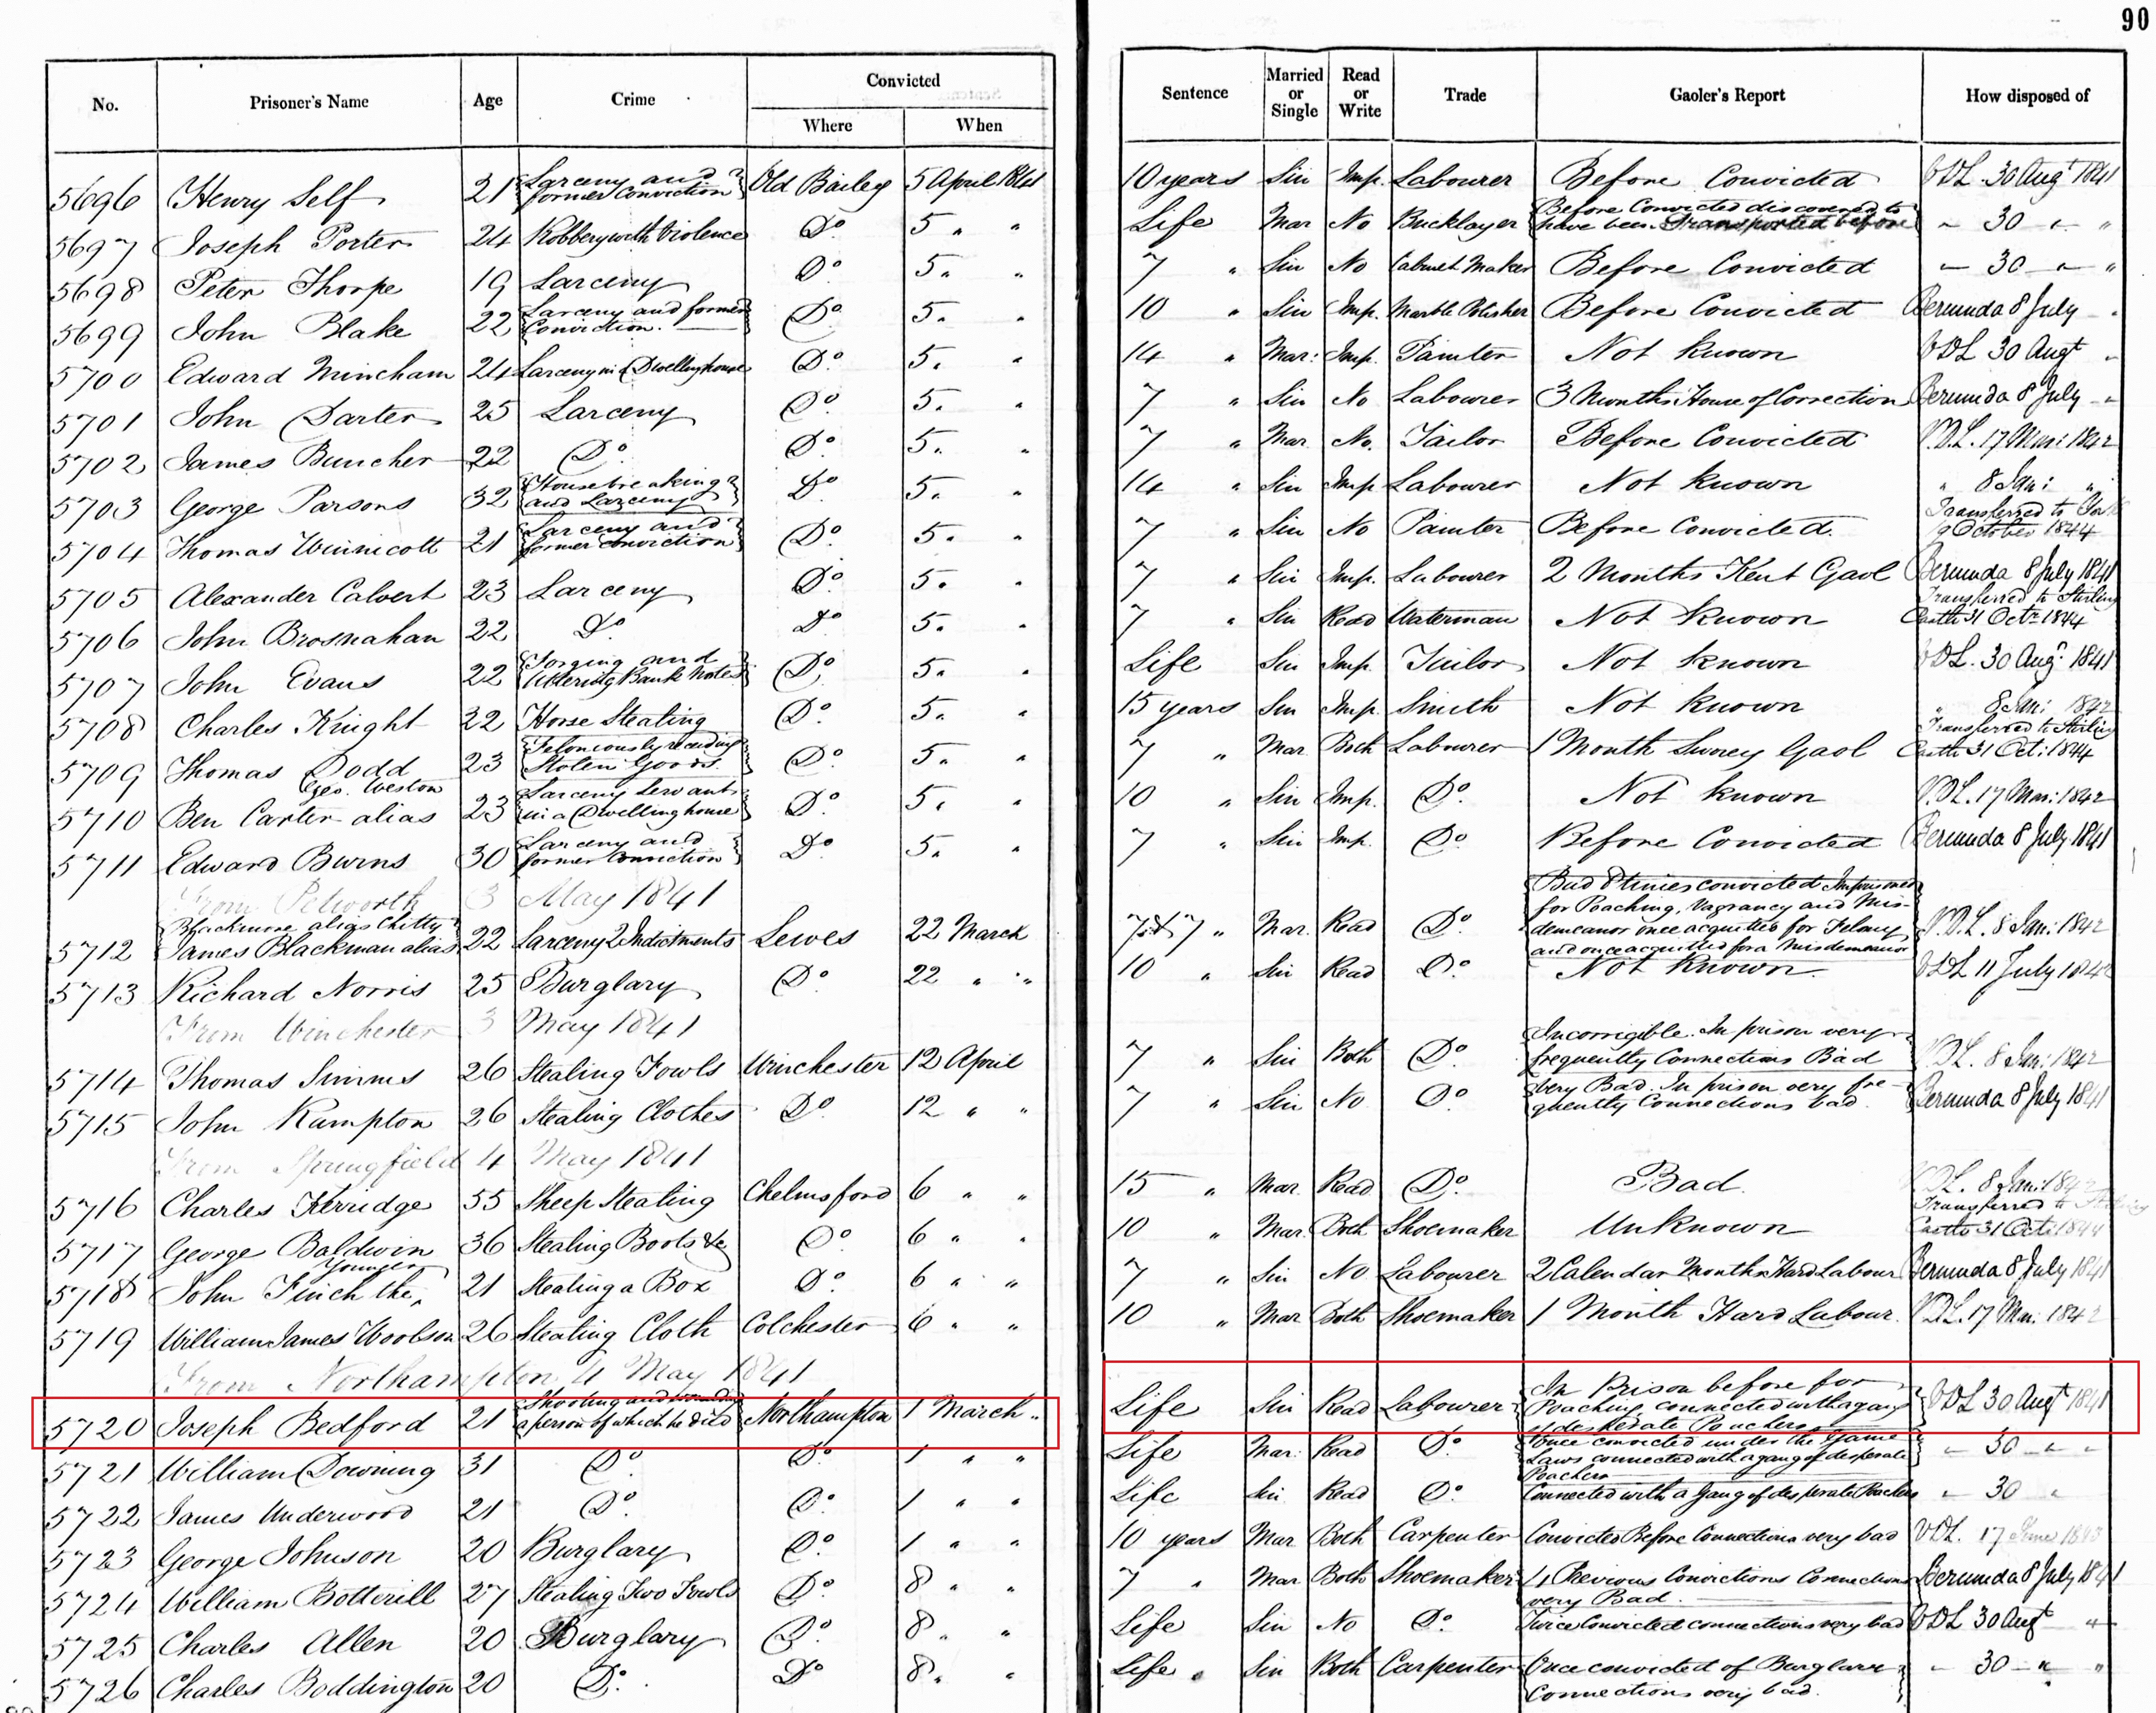 90
No. Prisoner's Name Age Crime Convicted Where When Sentence Married or Single Read or Write Trade Gaoler's Report How disposed of
5696 Henry Self 21 Larceny and former Conviction Old Bailey 5 April 1841 10 years Sin Imp. Labourer Before Convicted VDL 30 Augt 1841
5697 Joseph Porter 24 Robbery with Violence Do 5 " " Life Mar No Bricklayer Before Convicted discovered to have been Transported before " 30 " "
5698 Peter Thorpe 19 Larceny Do 5 " " 7 " Sin No Cabinet Maker Before Convicted " 30 " "
5699 John Blake 22 Larceny and former Conviction. Do 5 " " 10 " Sin Imp. Marble Polisher Before Convicted Bermuda 8 July "
5700 Edward Mincham 24 Larceny in a Dwelling house Do 5 " " 14 " Mar: Imp. Painter Not known VDL 30 Augt "
5701 John Darter 25 Larceny Do 5 " " 7 " Sin No Labourer 3 Months House of Correction Bermuda 8 July "
5702 James Buncher 22 Do Do 5 " " 7 " Mar No. Tailor Before Convicted V.D.L. 17 Mar: 1842
5703 George Parsons 32 Housebreaking and Larceny Do 5 " " 14 " Sin Imp Labourer Not known " 8 Jan: "
5704 Thomas Winnicott 21 Larceny and former conviction Do 5 " " 7 " Sin No Painter Before Convicted. Transferred to 9 October 1844
5705 Alexander Calvert 23 Larceny Do 5 " " 7 " Sin Imp. Labourer 2 Months Kent Gaol Bermuda 8 July 1841
5706 John Brosnahan 22 Do Do 5 " " 7 " Sin Read Waterman Not known Transferred to Stirling Castle 31 Octr 1844
5707 John Evans 22 Forging and Uttering Bank Notes Do 5 " " Life Sin Imp. Tailor Not known VDL. 30 Augt 1841
5708 Charles Knight 22 Horse Stealing Do 5 " " 15 years Sin Imp. Smith Not known " 8 Jan: 1842
5709 Thomas Dodd 23 Feloniously receiving Stolen Goods. Do 5 " " 7 " Mar Both Labourer 1 Month Surrey Gaol Transferred to Stirling Castle 31 Oct: 1844
5710 Ben Carter alias Geo. Weston 23 Larceny Servant in a Dwelling house Do 5 " " 10 " Sin Imp. Do Not known V.D.L. 17 Mar: 1842
5711 Edward Burns 30 Larceny and former Conviction Do 5 " " 7 " Sin Imp. Do Before Convicted Bermuda 8 July 1841
From Petworth 3 May 1841
5712 James Blackman alias Blackmore alias Chitty 22 Larceny 2 Indictments Lewes 22 March 7 & 7 " Mar. Read Do Bad 8 times convicted Imprisoned for Poaching, Vagrancy and Misdemeanor once acquitted for Felony and once acquitted for a Misdemeanor V.D.L. 8 Jan: 1842
5713 Richard Norris 25 Burglary Do 22 " " 10 " Sin Read Do Not Known. VDL 11 July 1842
From Winchester 3 May 1841
5714 Thomas Simms 26 Stealing Fowls Winchester 12 April 7 " Sin Both Do Incorrigible. In prison very frequently Connections Bad V.D.L. 8 Jan: 1842
5715 John Kempton 26 Stealing Clothes Do 12 " " 7 " Sin No Do Very Bad. In prison very frequently Connections bad. Bermuda 8 July 1841
From Springfield 4 May 1841
5716 Charles Kerridge 55 Sheep Stealing Chelmsford 6 " " 15 " Mar. Read Do Bad. V.D.L. 8 Jan: 1842
5717 George Baldwin 36 Stealing Boots &c Do 6 " " 10 " Mar. Both Shoemaker Unknown Transferred to Stirling Castle 31 Oct: 1844
5718 John Finch the Younger 21 Stealing a Box Do 6 " " 7 " Sin No Labourer 2 Calendar Months Hard Labour Bermuda 8 July 1841
5719 William James Woobson 26 Stealing Cloth Colchester 6 " " 10 " Mar Both Shoemaker 1 Month Hard Labour. VDL. 17 Mar: 1842
From Northampton 4 May 1841
5720 Joseph Bedford 21 Shooting and wounding a person of which he died Northampton 1 March " Life Sin Read Labourer In Prison before for Poaching connected with a gang of desperate Poachers VDL 30 Augt 1841
5721 William Downing 31 Do Do 1 " " Life Mar: Read Do Once convicted under the Game Laws connected with a gang of desperate Poachers " 30 " "
5722 James Underwood 21 Do Do 1 " " Life Sin Read Do Connected with a Gang of desperate Poachers " 30 "
5723 George Johnson 20 Burglary Do 1 " " 10 years Mar Both Carpenter Convicted Before Connections very bad VDL. 17 June 1843
5724 William Botterill 27 Stealing Two Fowls Do 8 " " 7 " Mar Both Shoemaker 4 Previous Convictions Connections very Bad. Bermuda 8 July 1841
5725 Charles Allen 20 Burglary Do 8 " " Life Sin No Do Twice Convicted connections very bad VDL 30 Augt "
5726 Charles Boddington 20 Do Do 8 " " Life Sin Both Carpenter Once convicted of Burglary Connections very bad. " 30 " "